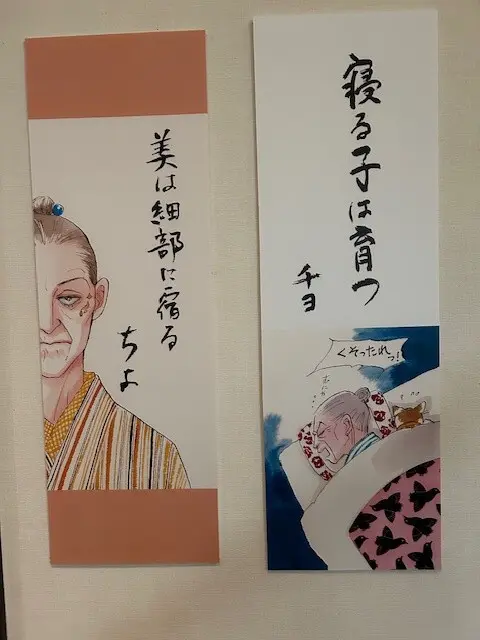 寝る子は育つ
チヨ
くそったれっ!
美は細部に宿る
ちよ